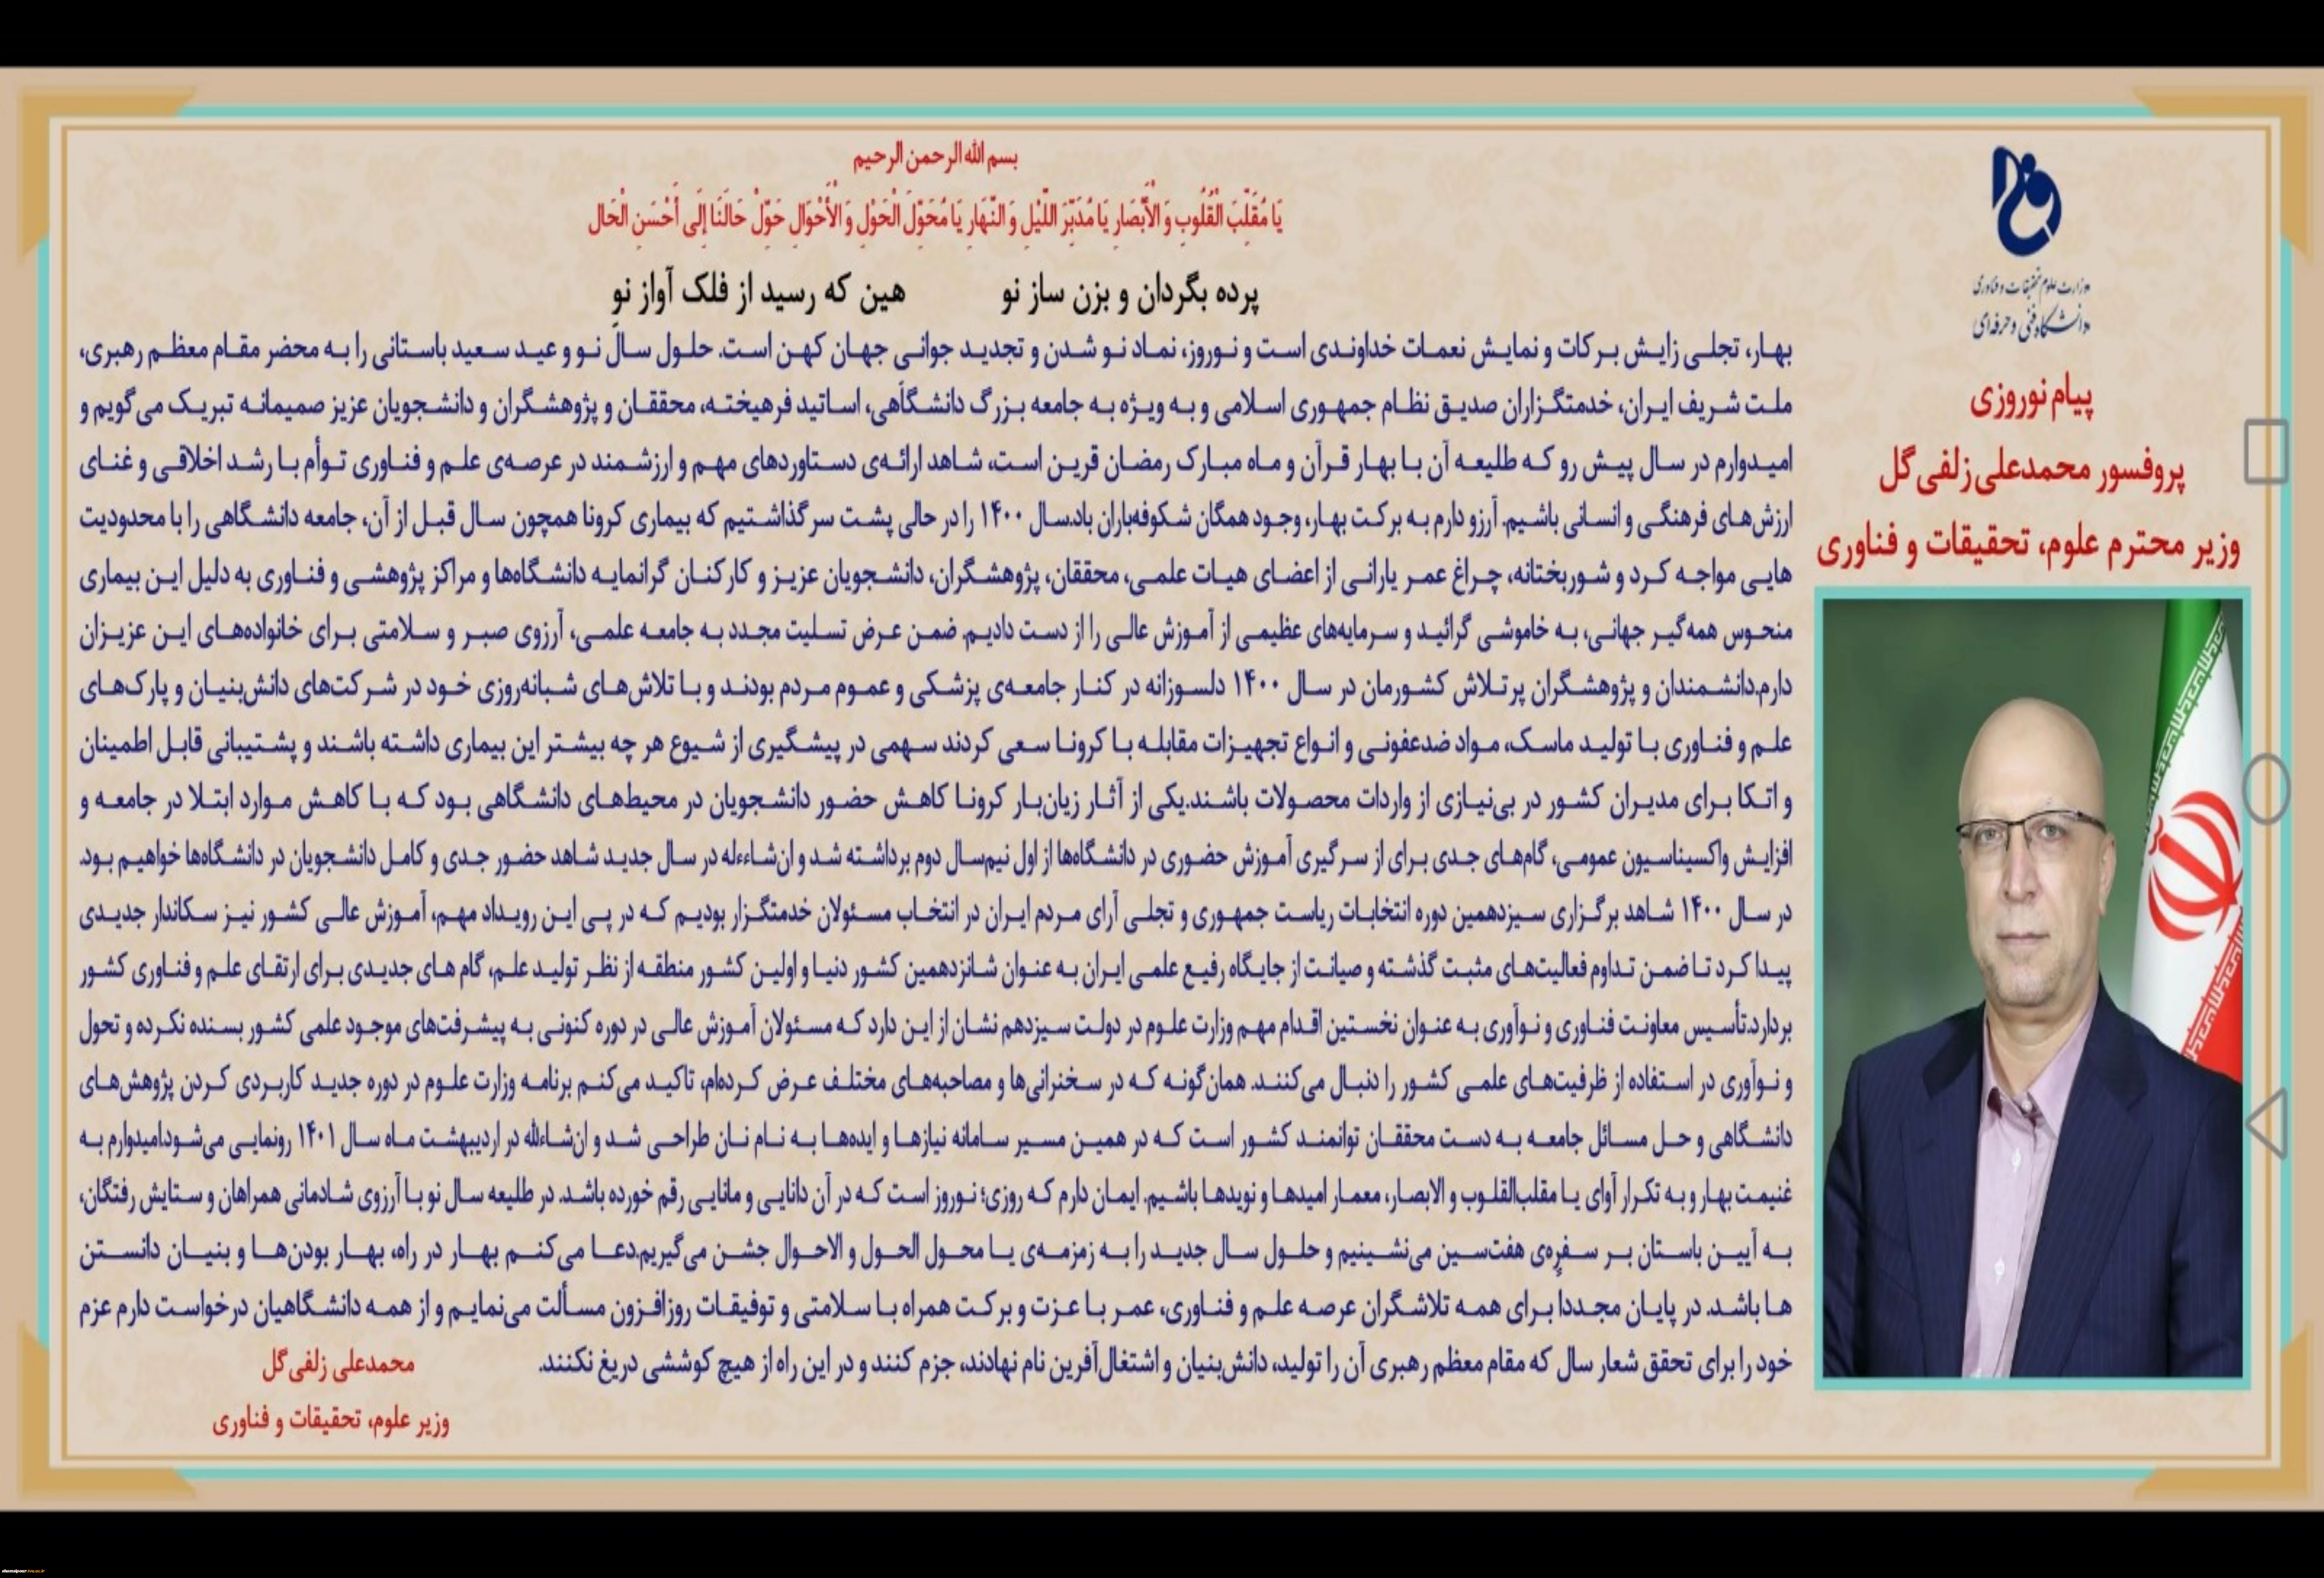 بسم الله الرحمن الرحیم
یَا مُقَلِّبَ الْقُلُوبِ وَ الْأَبْصَارِ یَا مُدَبِّرَ اللَّیْلِ وَ النَّهَارِ یَا مُحَوِّلَ الْحَوْلِ وَ الْأَحْوَالِ حَوِّلْ حَالَنَا إِلَی أَحْسَنِ الْحَالِ
پرده بگردان و بزن ساز نو هین که رسید از فلک آواز نو
وزارت علوم تحقیقات و فناوری
دانشگاه فنی و حرفه‌ای
پیام نوروزی
پروفسور محمدعلی زلفی گل
وزیر محترم علوم، تحقیقات و فناوری
بهار، تجلی زایش برکات و نمایش نعمات خداوندی است و نوروز، نماد نو شدن و تجدید جوانی جهان کهن است. حلول سال نو و عید سعید باستانی را به محضر مقام معظم رهبری،
ملت شریف ایران، خدمتگزاران صدیق نظام جمهوری اسلامی و به ویژه به جامعه بزرگ دانشگاهی، اساتید فرهیخته، محققان و پژوهشگران و دانشجویان عزیز صمیمانه تبریک می‌گویم و
امیدوارم در سال پیش رو که طلیعه آن با بهار قرآن و ماه مبارک رمضان قرین است، شاهد ارائه‌ی دستاوردهای مهم و ارزشمند در عرصه‌ی علم و فناوری توأم با رشد اخلاقی و غنای
ارزش‌های فرهنگی و انسانی باشیم. آرزو دارم به برکت بهار، وجود همگان شکوفه‌باران باد.سال ۱۴۰۰ را در حالی پشت سر گذاشتیم که بیماری کرونا همچون سال قبل از آن، جامعه دانشگاهی را با محدودیت
هایی مواجه کرد و شوربختانه، چراغ عمر یارانی از اعضای هیات علمی، محققان، پژوهشگران، دانشجویان عزیز و کارکنان گرانمایه دانشگاه‌ها و مراکز پژوهشی و فناوری به دلیل این بیماری
منحوس همه‌گیر جهانی، به خاموشی گرائید و سرمایه‌های عظیمی از آموزش عالی را از دست دادیم. ضمن عرض تسلیت مجدد به جامعه علمی، آرزوی صبر و سلامتی برای خانواده‌های این عزیزان
دارم.دانشمندان و پژوهشگران پرتلاش کشورمان در سال ۱۴۰۰ دلسوزانه در کنار جامعه‌ی پزشکی و عموم مردم بودند و با تلاش‌های شبانه‌روزی خود در شرکت‌های دانش‌بنیان و پارک‌های
علم و فناوری با تولید ماسک، مواد ضدعفونی و انواع تجهیزات مقابله با کرونا سعی کردند سهمی در پیشگیری از شیوع هر چه بیشتر این بیماری داشته باشند و پشتیبانی قابل اطمینان
و اتکا برای مدیران کشور در بی‌نیازی از واردات محصولات باشند.یکی از آثار زیان‌بار کرونا کاهش حضور دانشجویان در محیط‌های دانشگاهی بود که با کاهش موارد ابتلا در جامعه و
افزایش واکسیناسیون عمومی، گام‌های جدی برای از سرگیری آموزش حضوری در دانشگاه‌ها از اول نیم‌سال دوم برداشته شد و ان‌شاءءله در سال جدید شاهد حضور جدی و کامل دانشجویان در دانشگاه‌ها خواهیم بود.
در سال ۱۴۰۰ شاهد برگزاری سیزدهمین دوره انتخابات ریاست جمهوری و تجلی آرای مردم ایران در انتخاب مسئولان خدمتگزار بودیم که در پی این رویداد مهم، آموزش عالی کشور نیز سکاندار جدیدی
پیدا کرد تا ضمن تداوم فعالیت‌های مثبت گذشته و صیانت از جایگاه رفیع علمی ایران به عنوان شانزدهمین کشور دنیا و اولین کشور منطقه از نظر تولید علم، گام های جدیدی برای ارتقای علم و فناوری کشور
بردارد.تأسیس معاونت فناوری و نوآوری به عنوان نخستین اقدام مهم وزارت علوم در دولت سیزدهم نشان از این دارد که مسئولان آموزش عالی در دوره کنونی به پیشرفت‌های موجود علمی کشور بسنده نکرده و تحول
و نوآوری در استفاده از ظرفیت‌های علمی کشور را دنبال می‌کنند. همان‌گونه که در سخنرانی‌ها و مصاحبه‌های مختلف عرض کرده‌ام، تاکید می‌کنم برنامه وزارت علوم در دوره جدید کاربردی کردن پژوهش‌های
دانشگاهی و حل مسائل جامعه به دست محققان توانمند کشور است که در همین مسیر سامانه نیازها و ایده‌ها به نام نان طراحی شد و ان‌شاءالله در اردیبهشت ماه سال ۱۴۰۱ رونمایی می‌شود.امیدوارم به
غنیمت بهار و به تکرار آوای یا مقلب‌القلوب و الابصار، معمار امیدها و نویدها باشیم. ایمان دارم که روزی؛ نوروز است که در آن دانایی و مانایی رقم خورده باشد. در طلیعه سال نو با آرزوی شادمانی همراهان و ستایش رفتگان،
به آیین باستان بر سفره‌ی هفت‌سین می‌نشینیم و حلول سال جدید را به زمزمه‌ی یا محول الحول و الاحوال جشن می‌گیریم.دعا می‌کنم بهار در راه، بهار بودن‌ها و بنیان دانستن
ها باشد. در پایان مجددا برای همه تلاشگران عرصه علم و فناوری، عمر با عزت و برکت همراه با سلامتی و توفیقات روزافزون مسألت می‌نمایم و از همه دانشگاهیان درخواست دارم عزم
خود را برای تحقق شعار سال که مقام معظم رهبری آن را تولید، دانش‌بنیان و اشتغال‌آفرین نام نهادند، جزم کنند و در این راه از هیچ کوششی دریغ نکنند.
محمدعلی زلفی گل
وزیر علوم، تحقیقات و فناوری